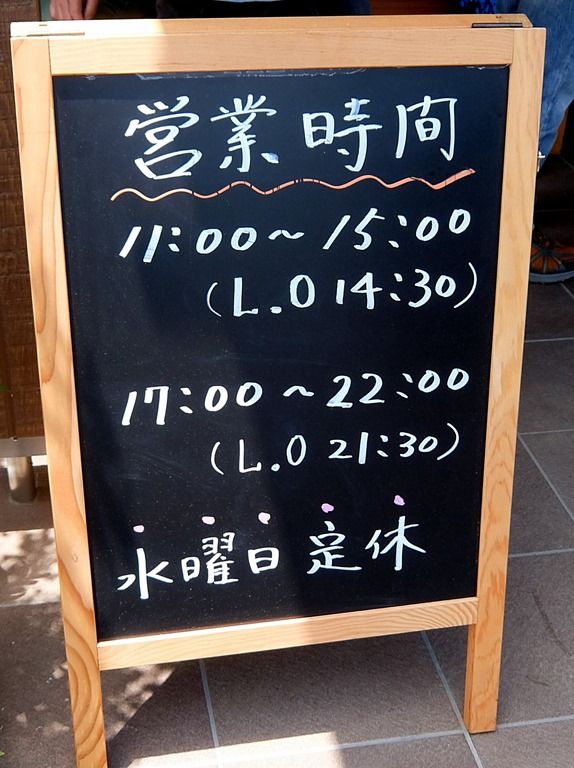 営業時間
11:00~15:00
(L.O 14:30)
17:00~22:00
(L.O 21:30)
水曜日定休